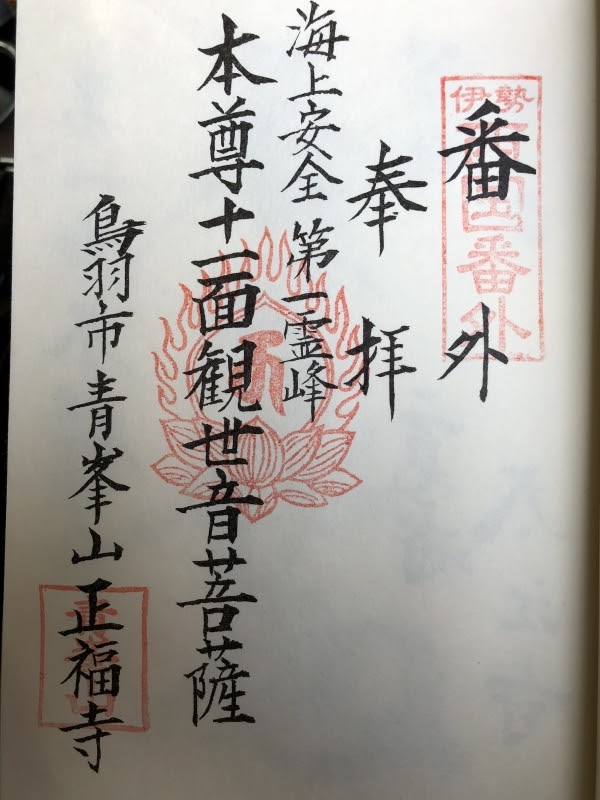 伊勢
西国番外
番外
奉拝
海上安全 第一霊峰
本尊十一面観世音菩薩
鳥羽市青峯山正福寺